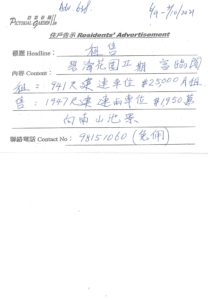 6/9-7/10/2021
PICTORIAL GARDEN
住戶告示 Residents' Advertisement
標題 Headline: 租售
內容 Content: 碧濤花園Ⅱ期
租: 941尺連車位 $25,000月租
售: 1947尺連兩車位 $1950萬
向南山池景
聯絡電話 Contact No: 98151060 (免佣)